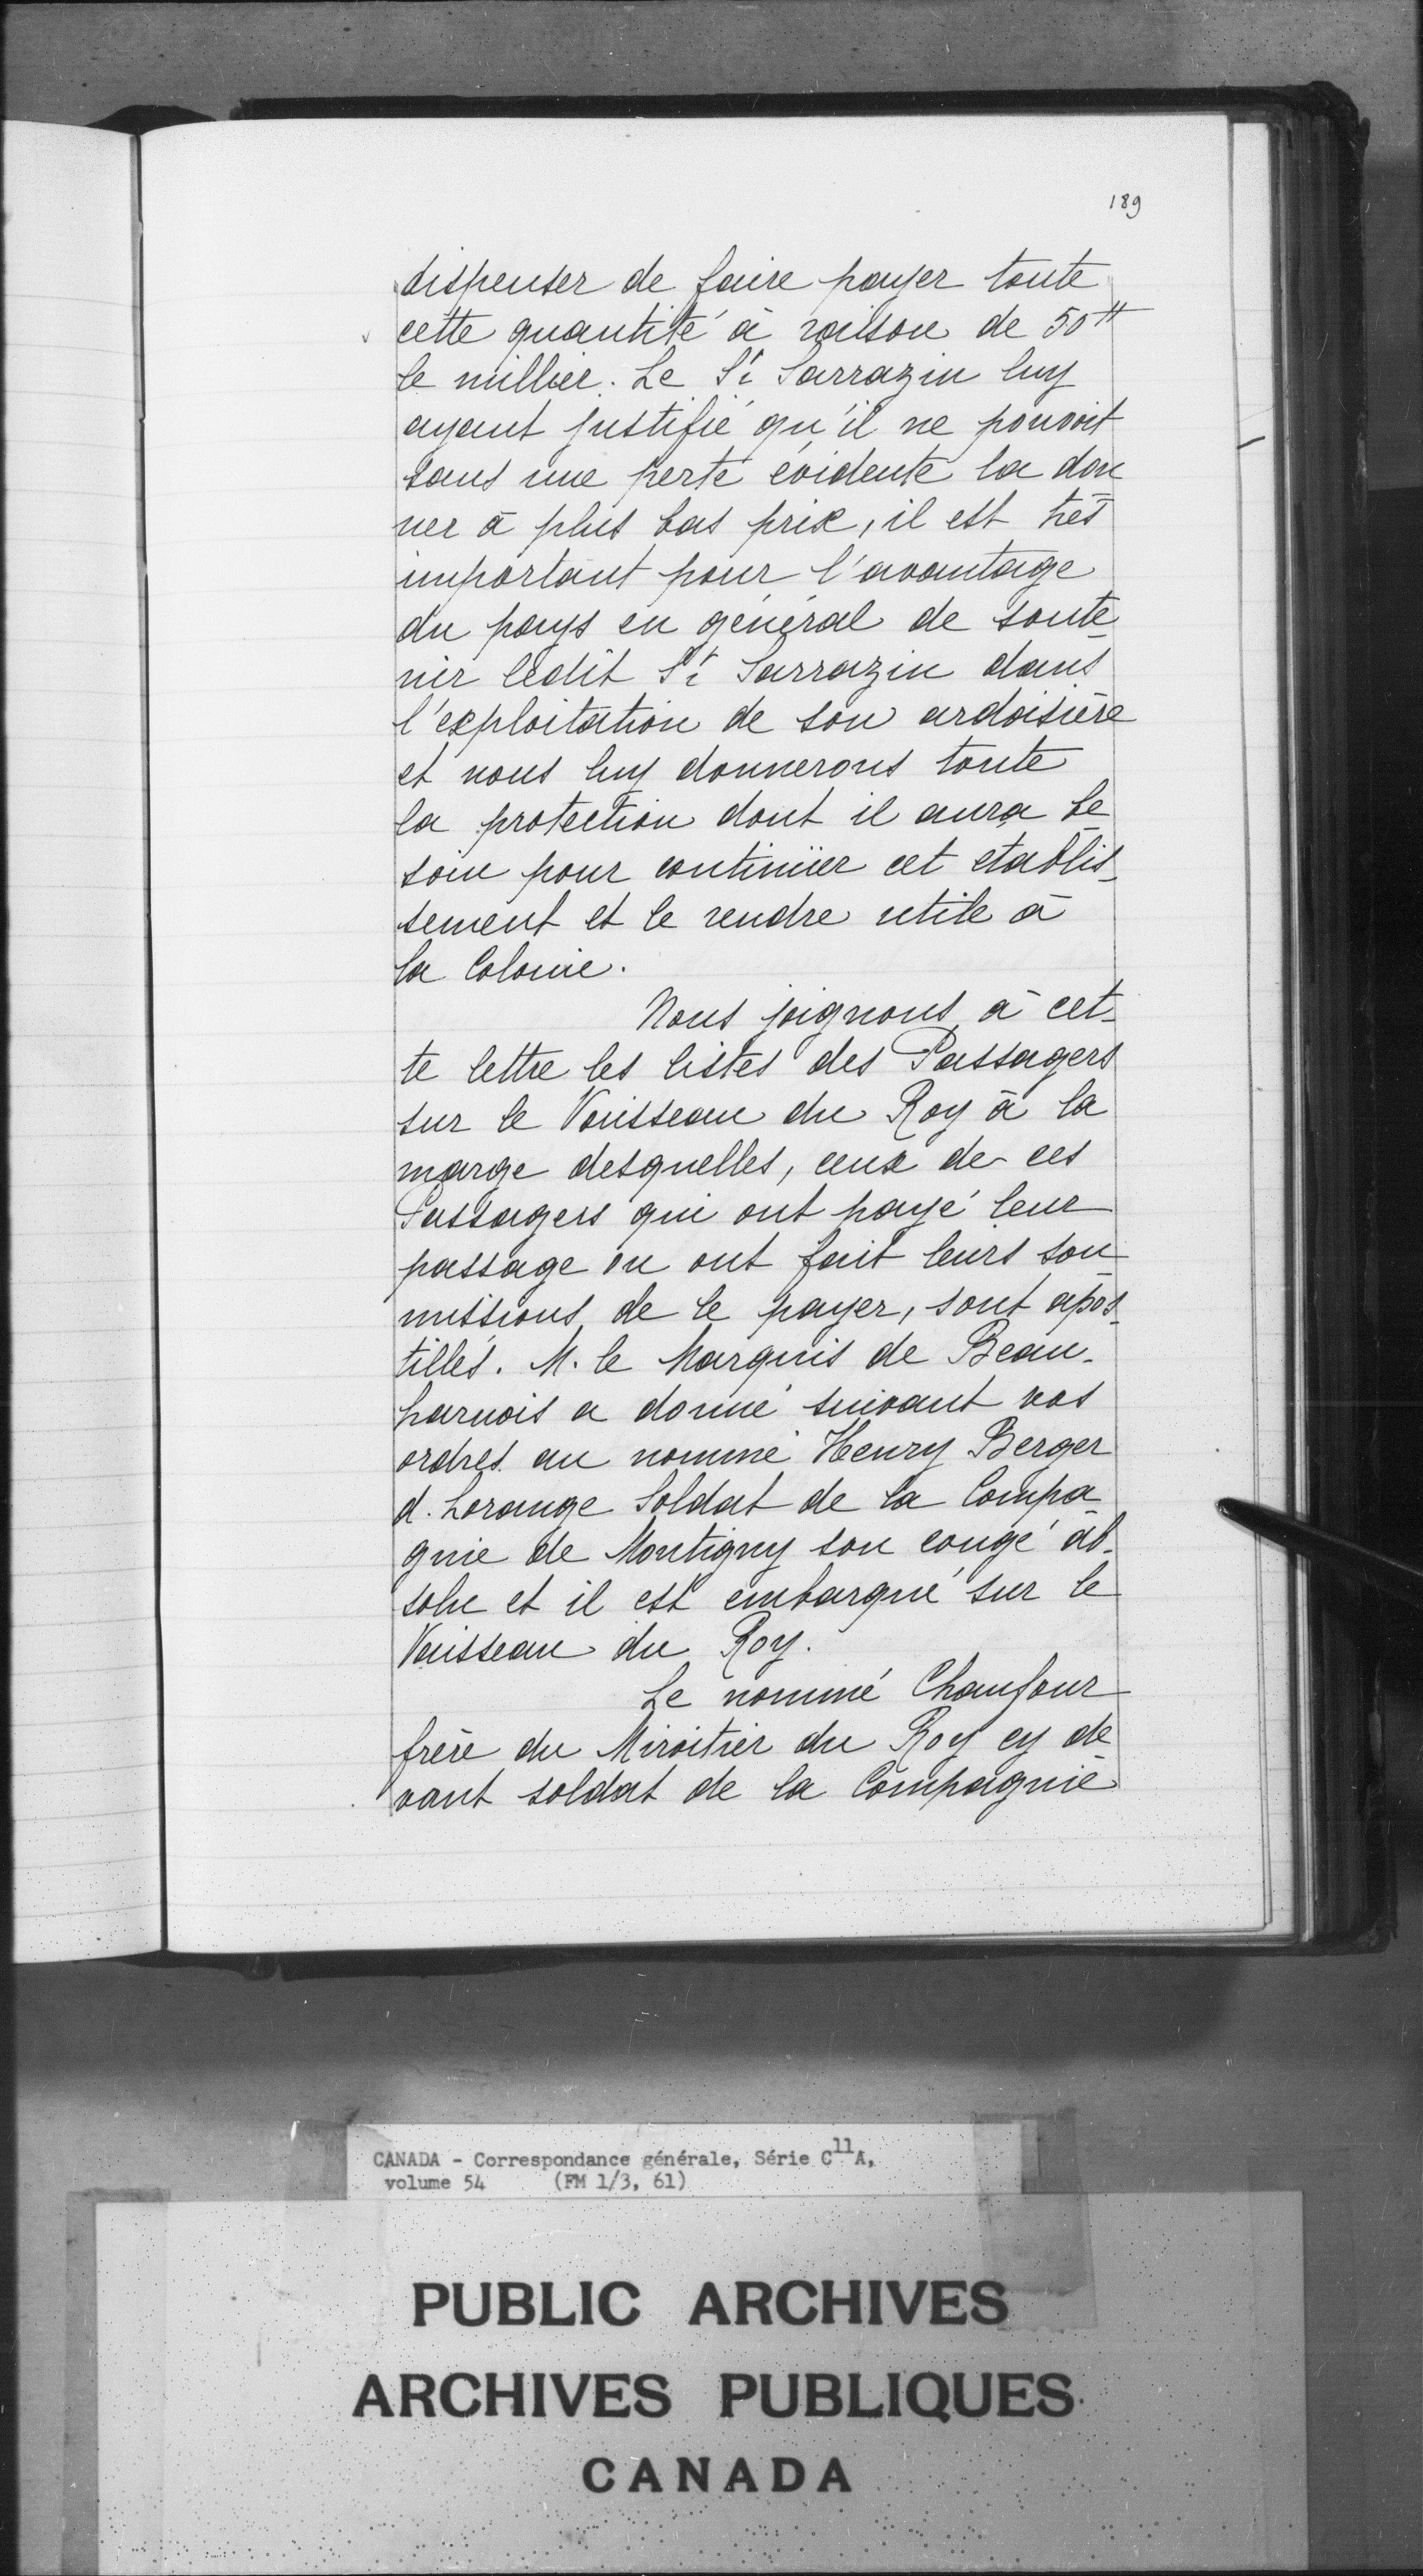 189
dispenser de faire payer toute
cette quantité à raison de 50ᵗᵗ
le millier. Le Sʳ Sarrazin luy
ayant justifié qu'il ne pouvoit
sans une perte évidente la don
ner à plus bas prix, il est très
important pour l'avantage
du pays en général de soute_
nir ledit Sʳ Sarrazin dans
l'exploitation de son ardoisière
et nous luy donnerons toute
la protection dont il aura be_
soin pour continüer cet etablis_
sement et le rendre utile à
la Colonie.
Nous joignons à cet_
te lettre les listes des Passagers
sur le Vaisseau du Roy à la
marge desquelles, ceux de ces
Passagers qui ont payé leur
passage ou ont fait leurs sou_
missions de le payer, sont apos_
tillés. M. le Marquis de Beau_
harnois a donné suivant vos
ordres au nommé Henry Berger
d. Lorange Soldat de la Compa_
gnie de Montigny son congé ab_
solu et il est embarqué sur le
Vaisseau du Roy.
Le nommé Chaufour
frère du Miroitier du Roy cy de_
vant soldat de la Compagnie
CANADA - Correspondance générale, Série C¹¹A,
volume 54 (FM 1/3, 61)
PUBLIC ARCHIVES
ARCHIVES PUBLIQUES
CANADA